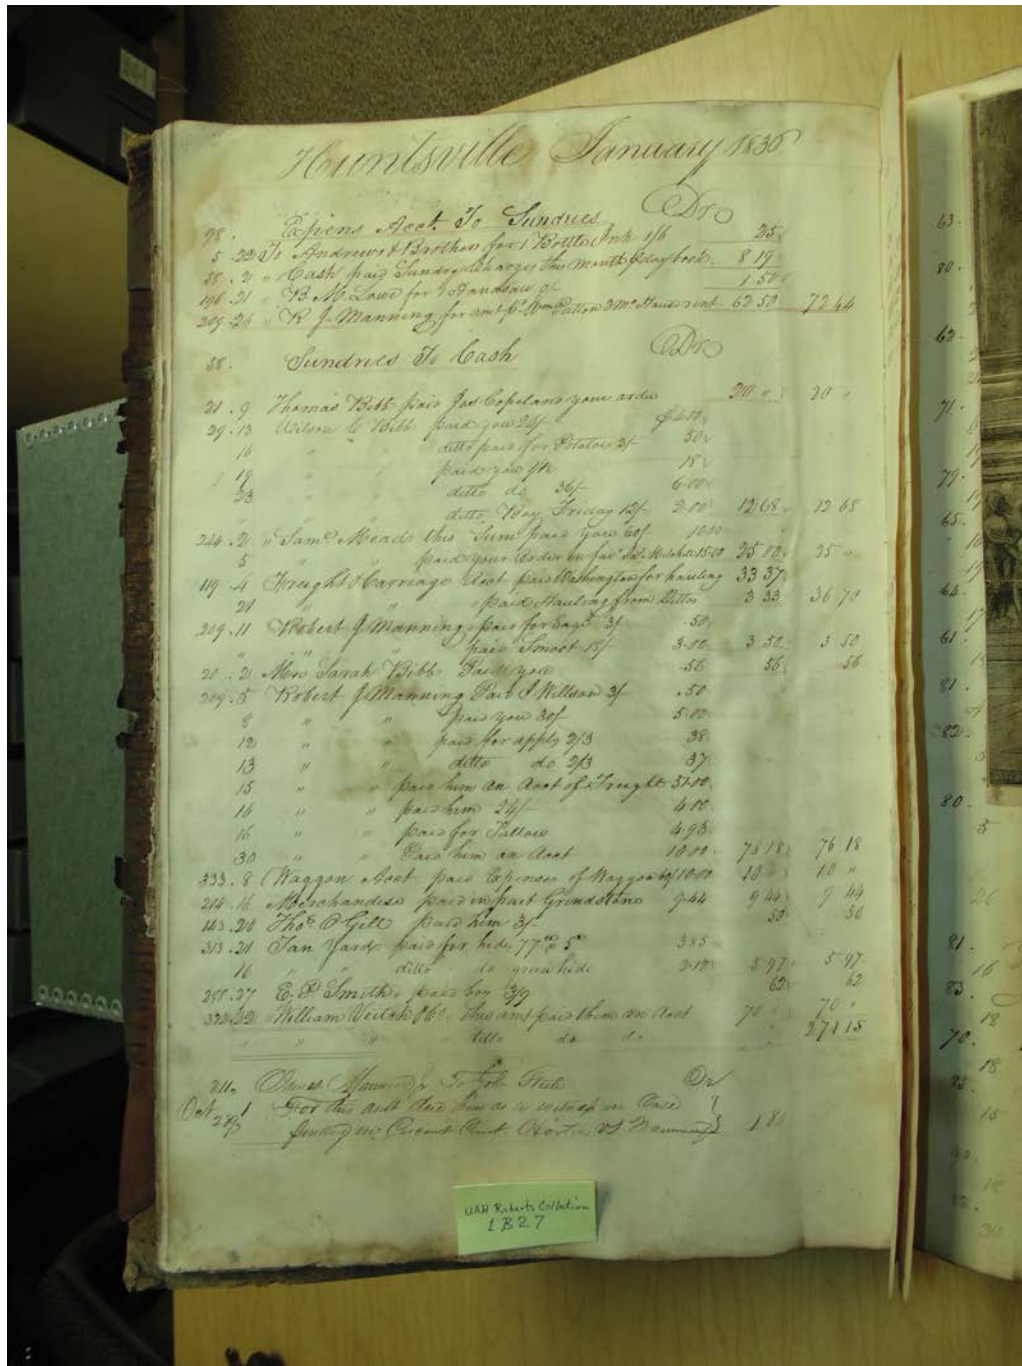 Huntsville January 1836
98. Expens Acct. To Sundries Dr
5 . 22 To Andrews & Brothers for 1 Bottle Ink 1/6 25
38 . 2 " Cash paid Sundry Charges this month pr day book. 8 19
196 . 21 " B. M. Lowe for 1 Handsaw 9/ 1 50
209 . 26 " R J. Manning for amt pd Wm Patton 3 Mo House rent 62 50 72 44
38. Sundries To Cash Dr
21 . 9 Thomas Bibb paid Jas Copeland your order 20 " 20 "
29 . 13 Wilson C Bibb paid you 24/ $4.00
16 " " ditto paid for Potatoes 3/ 50
19 " " paid you 18
23 " " ditto do 36/ 6.00
" " ditto Boy Friday 12/ 2.00 12 68 12 68
244 . 2 " Saml. Meads this Sum paid you 60/ 10.00
5 paid your Order in favr 15.00 25 00 25 "
119 . 4 Freight & Carriage Acct paid Washington for hauling 33 37
21 " " paid Hauling from Ditto 3 33 36 70
209 . 11 Robert J Manning paid for 3/ .50
" " paid Smoot 18/ 3.00 3 50 3 50
20 . 2 Mrs Sarah Bibb Paid you .56 56 56
209 . 5 Robert J Manning Paid J Willson 3/ .50
8 " " paid you 30/ 5.00
12 " " paid for apply 2/3 38
13 " " ditto do 2/3 37
15 " " paid him on Acct of Freight 51.00
16 " " paid him 24/ 4.00
16 " " paid for Tallow 4.93
30 " " Paid him on Acct 10.00 76 18 76 18
333 . 8 Waggon Acct paid Expenses of Waggon 60/ 10.00 10 " 10 "
214 . 16 Merchandise paid in part Grindstone 9.44 9 44 9 44
143 . 20 Thos. P Gill paid him 3/ 50 50
313 . 21 Tan Yard paid for hide, 77 @ 5 3.85
16 " " ditto do hide 2.12 5 97 5 97
27 E. P. Smith paid boy 3/9 62 62
322 . 22 William Veitch & Co this amt paid them on Acct 70 " 70 "
" " " ditto do do 271 15
211. James Manning To John Dr
Oct 1 For this amt due him as a witness in Case
pending in Circuit Court vs Manning
UAH Roberts Collection
1B27
63.
80.
62.
71.
79.
65.
64.
61.
81.
82.
80.
81.
83.
70.